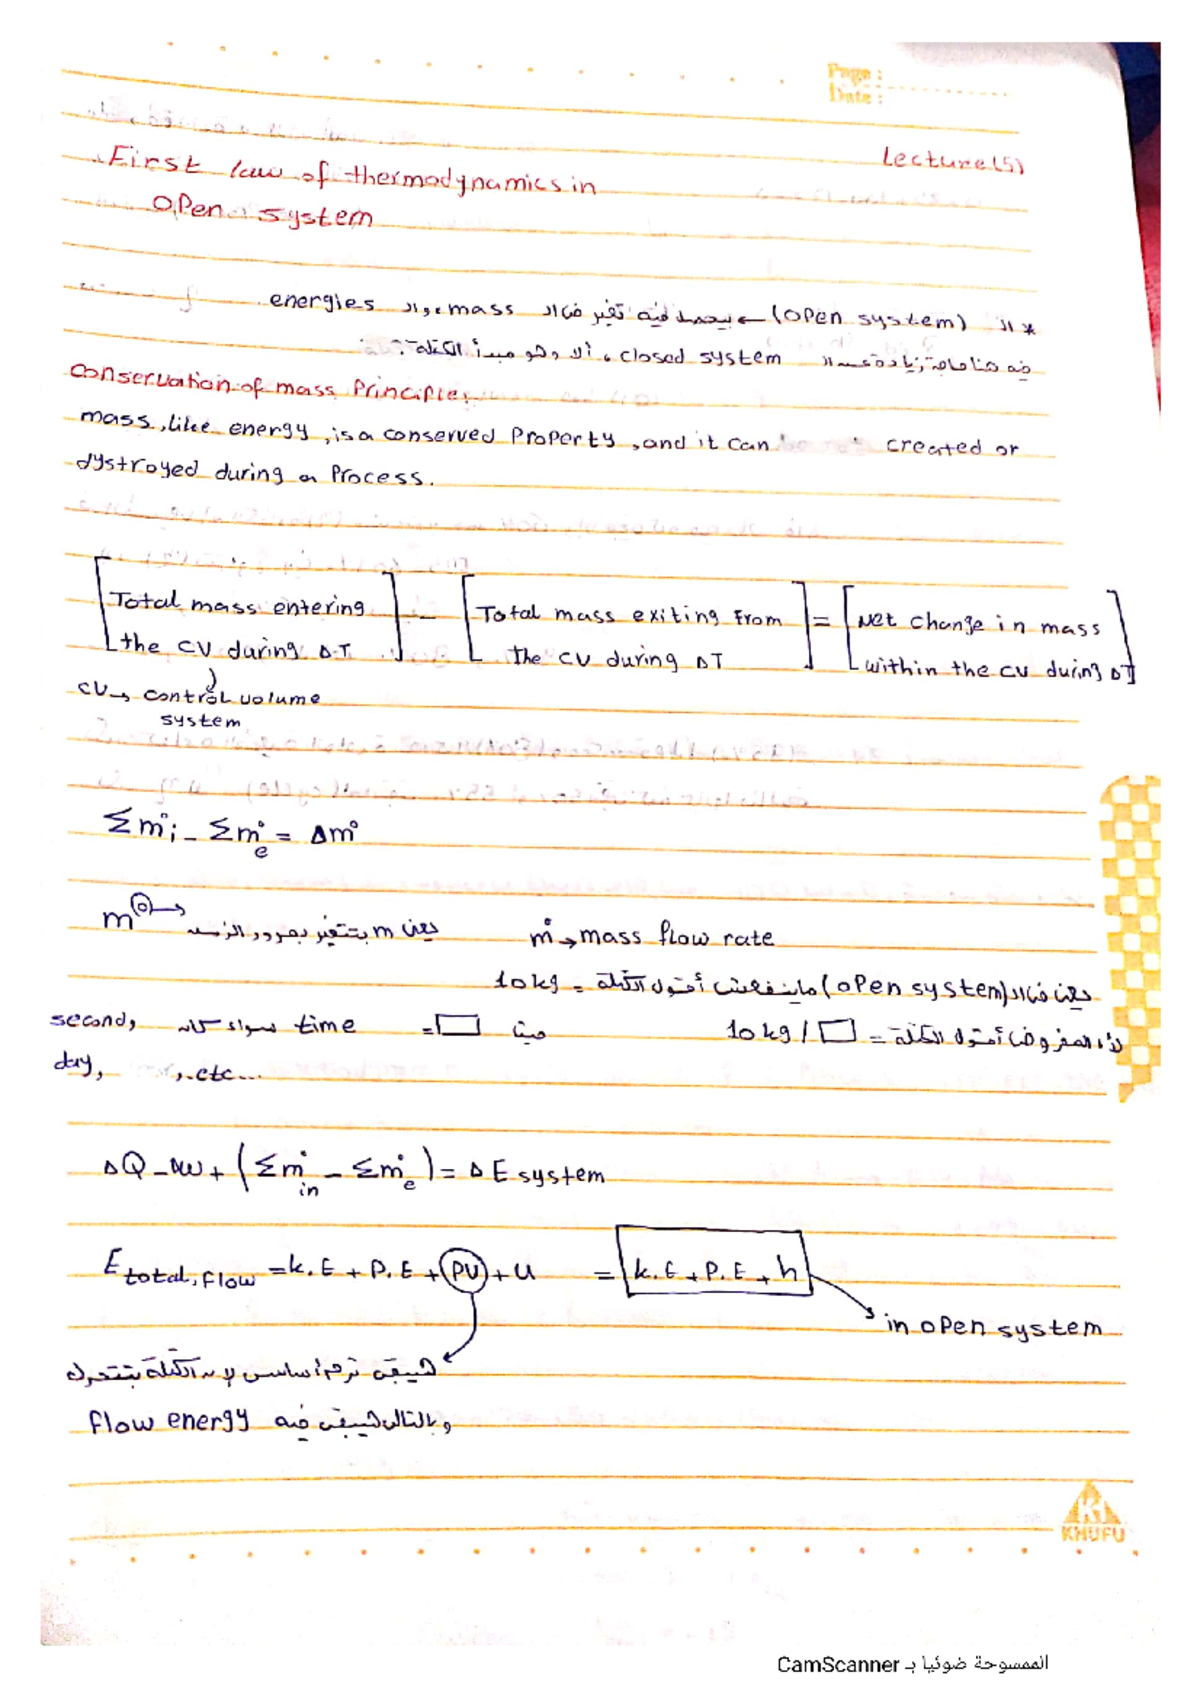 Page :
Date :
Lecture (5)
First law of thermodynamics in
open system
* الـ (open system) ← بيحصل فيه تغير في الـ mass والـ energies.
فيه هنا حاجة زيادة عن الـ closed system ، ألا وهو مبدأ الكتلة:
conservation of mass Principle:
mass, like energy, is a conserved Property, and it can created or
dystroyed during a Process.
[Total mass entering the CV during ΔT] - [Total mass exiting From the CV during ΔT] = [Net change in mass within the CV duing ΔT]
CV → control volume
system
Σm°i - Σm°e = Δm°
m° → يعني m بتتغير بمرور الزمن
m° → mass flow rate
يعني في الـ (open system) ماينفعش أقول الكتلة = 10 kg
لأن المفروض أقول الكتلة = 10 kg / □
حيث □ = time سواء كان second,
day, , etc...
ΔQ - ΔW + (Σm°in - Σm°e) = ΔE system
E total, flow = k.E + P.E + PV + u = k.E + P.E + h
in open system
هيبقى ترم أساسي لأن الكتلة بتتحرك
وبالتالي هيبقى فيه flow energy
K1
KHUFU
الممسوحة ضوئيا بـ CamScanner